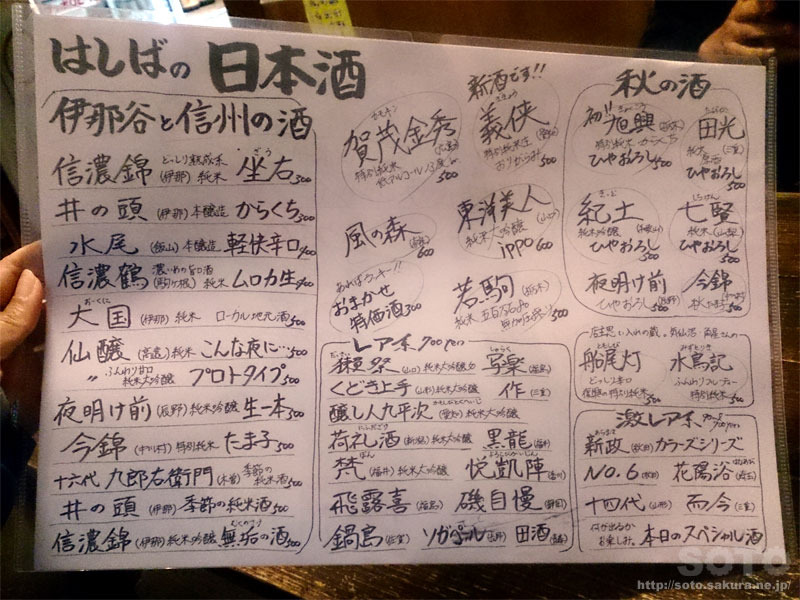 はしばの 日本酒
伊那谷と信州の酒
信濃錦 どっしり熟成系 (伊那) 純米 坐右 ざう 500
井の頭 (伊那) 本醸造 からくち 500
水尾 (飯山) 本醸造 軽快辛口 400
信濃鶴 濃いめの旨口酒 (駒ヶ根) 純米 ムロカ生
大国 おーくに (伊那) 純米 ローカル地元酒 500
仙醸 (高遠) 純米 こんな夜に… 500
〃 ふんわり甘口 純米大吟醸 プロトタイプ 500
夜明け前 (辰野) 純米吟醸 生一本 500
今錦 (中川村) 特別純米 たま子 500
十六代 九郎右衛門 (木曽) 季節の純米酒 500
井の頭 (伊那) 季節の純米酒 500
信濃錦 (伊那) 純米吟醸 無垢の酒 むくのさけ 500
賀茂金秀 カモキン (広島)
特別純米
低アルコール13度 500
新酒です!!
義侠 ぎきょう (愛知)
特別純米生
おりがらみ 500
風の森 600
東洋美人 (山口)
純米大吟醸
ippo 600
あればラッキー!!
おまかせ
特価酒 300
若駒 (栃木)
純米 五百万石 500
レア系 700yen
獺祭 だっさい (山口) 純米大吟醸 写楽 しゃらく (福島)
くどき上手 (山形) 純米大吟醸 作 (三重)
醸し人九平次 かもしびとくへいじ (愛知) 純米大吟醸
荷札酒 にふだざけ (新潟) 純米大吟醸 黒龍 (福井)
梵 ぼん (福井) 純米大吟醸 悦凱陣 よろこびがいじん (香川)
飛露喜 (福島) 磯自慢 (静岡)
鍋島 (佐賀) ソガペール (長野) 田酒 (青森)
秋の酒
初!! 旭興 きょくこう (栃木)
特別純米 からくち
ひやおろし 500
田光 たびか (三重)
純米
ひやおろし 500
紀土 きっど (和歌山)
純米吟醸
ひやおろし 500
七賢 しちけん
純米 (山梨)
ひやおろし 500
夜明け前
ひやおろし (辰野) 500
今錦
500
店主思い入れの蔵。気仙沼 角星さんの
船尾灯 ともしび
どっしり辛口
特別純米 500
水鳥記 みずとりき
ふんわりフルーティー
特別純米 500
激レア系
新政 あらまさ (秋田) カラーズシリーズ
NO.6 (秋田) 花陽浴 はなあび (埼玉)
十四代 (山形) 而今 (三重)
何が出るかお楽しみ。 本日のスペシャル酒
SOTO
http://soto.sakura.ne.jp/